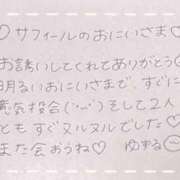 ♡サフィールのおにいさま♡
お誘いしてくれてありがとう♡
明るいおにいさまで、すぐに
意気投合(˙꒳˙)そして2人
ともすぐヌルヌルでした♡
また会おうね♡ ゆずる